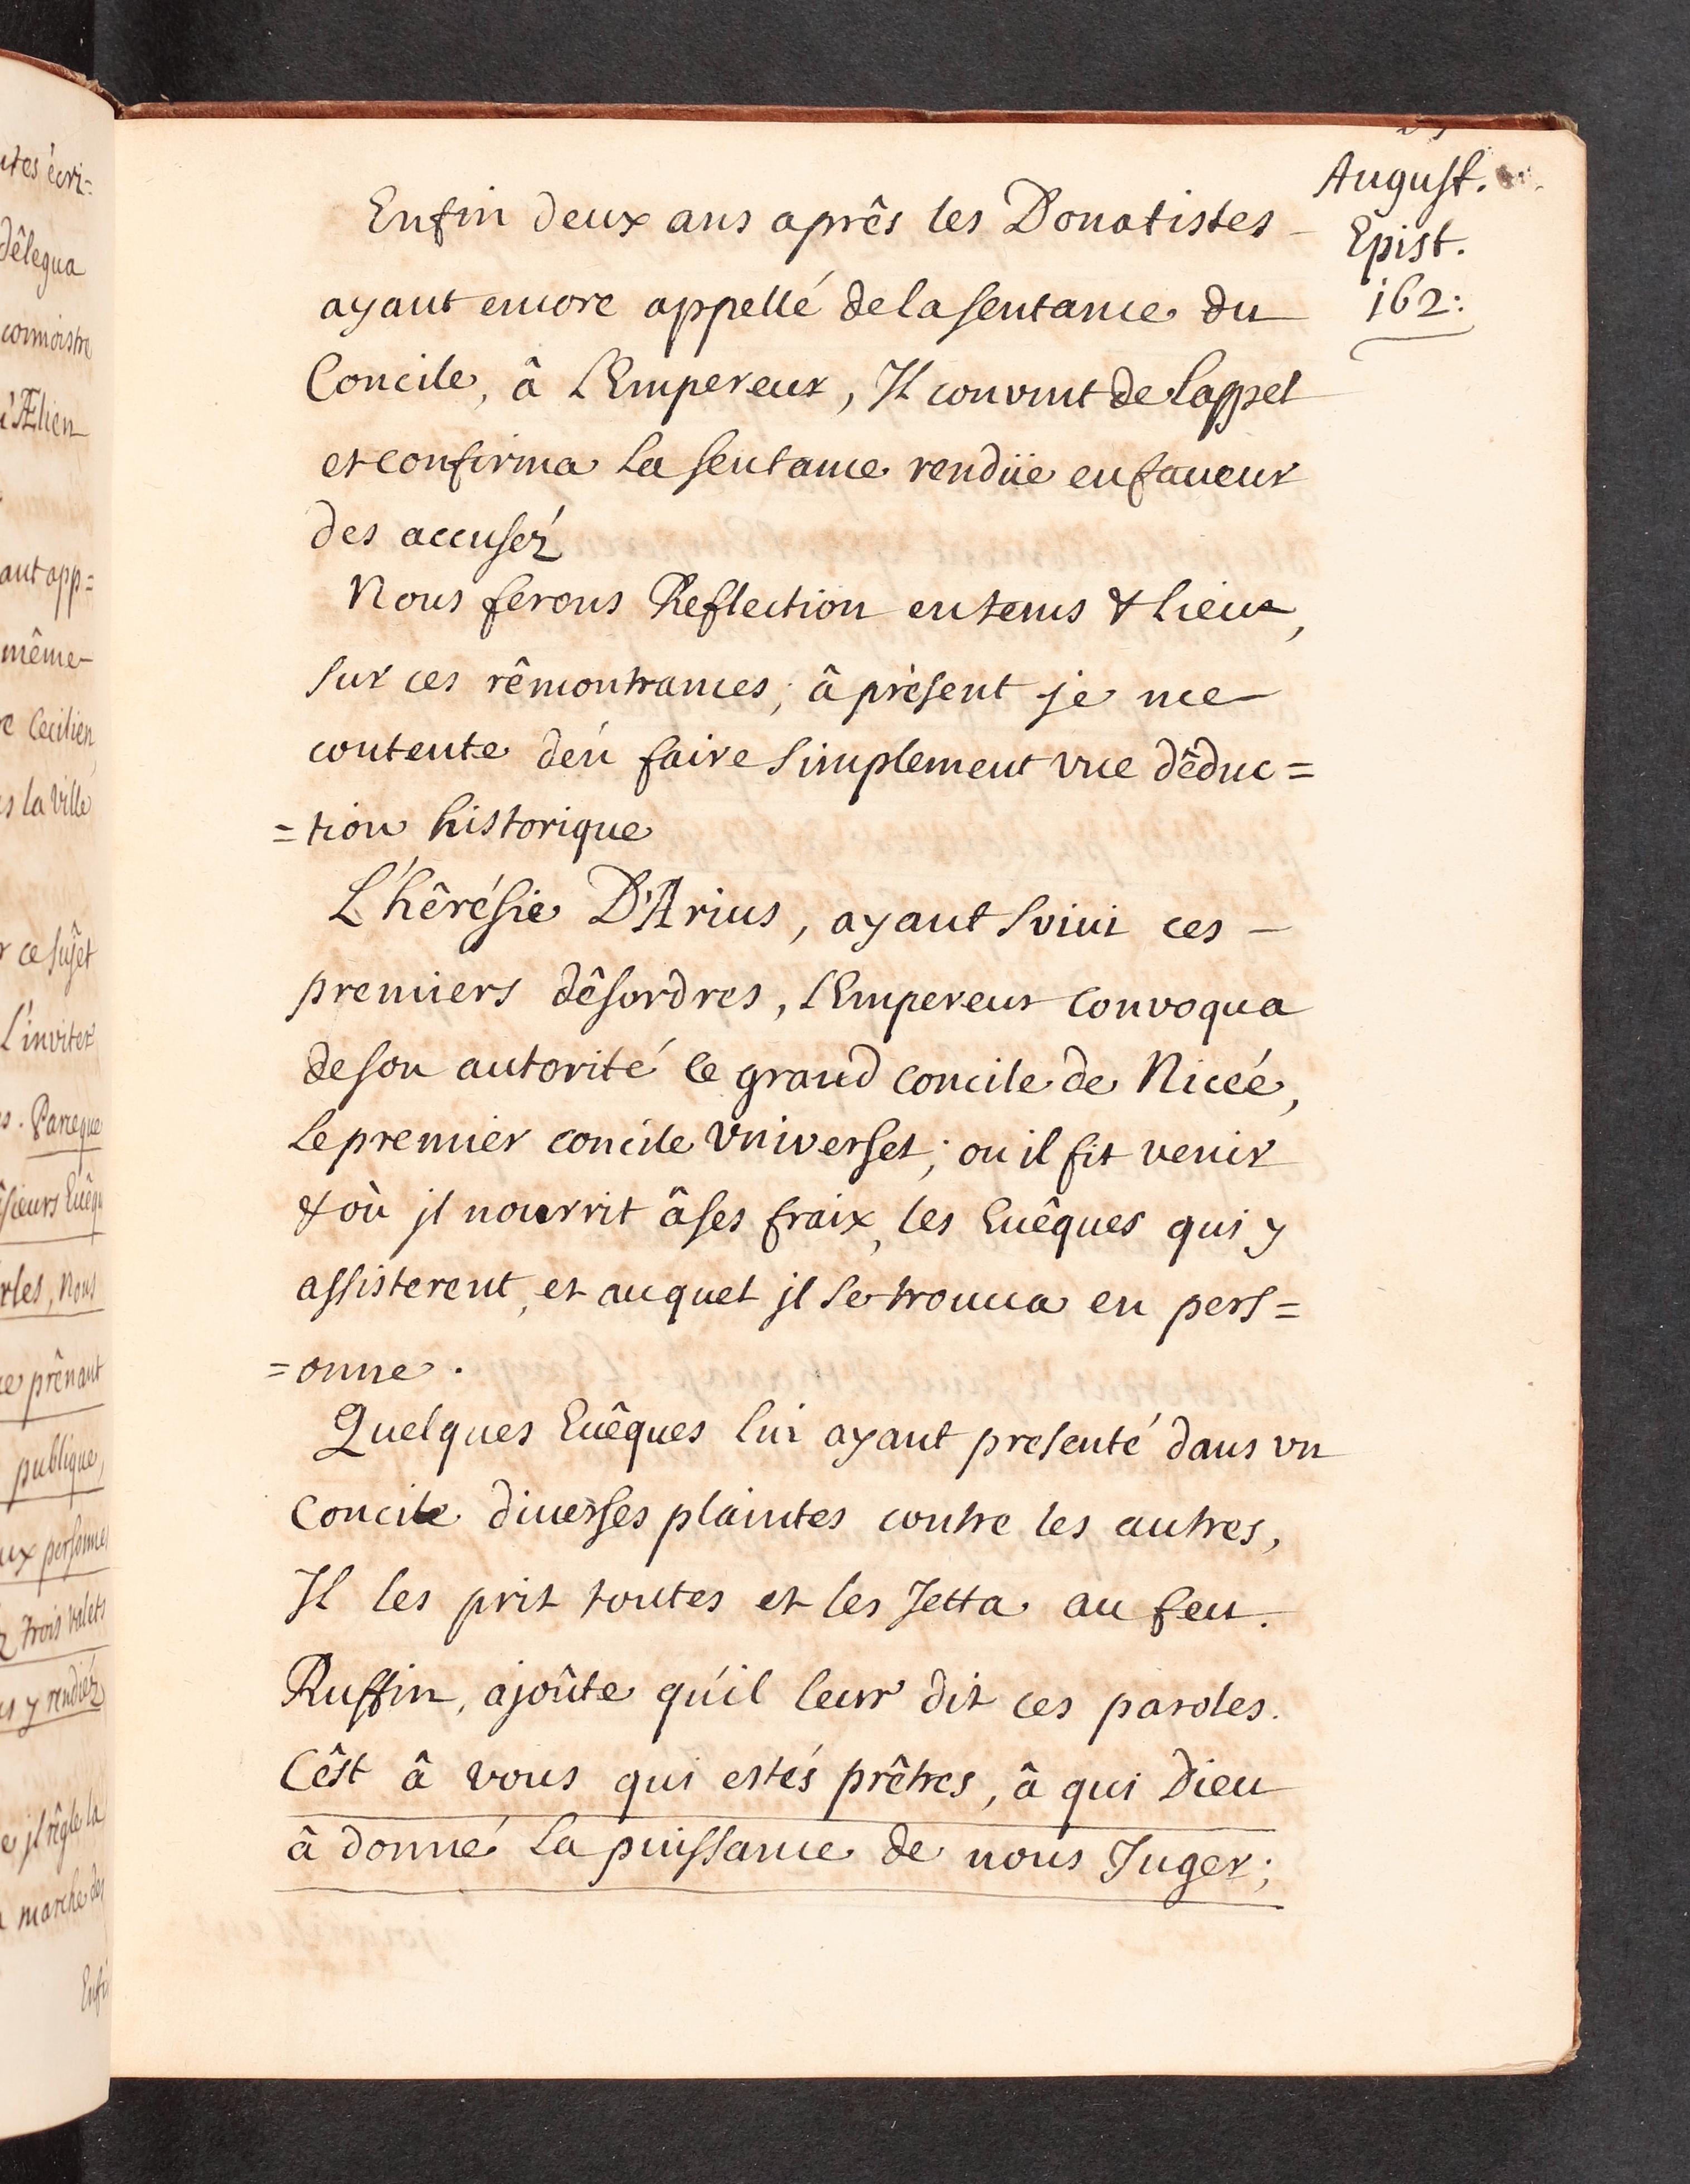 August.
Epist.
162:
Enfin deux ans aprês les Donatistes
ayant encore appellé de la sentance du
Concile, â l'Empereur, Il convint de lappel
et confirma la sentance rendüe en faueur
des accuséz
Nous ferons Reflection en tems & lieux,
sur ces rêmontrances; â présent je me
contente d'en faire simplement vne dêduc=
=tion historique
L'hêrésie D'Arius, ayant suiui ces
premiers dêsordres, l'Empereur Convoqua
de son autorité le grand concile de Nicée,
le premier concile vniversel; ou il fit venir
& où jl nourrit â ses fraix, les Euêques qui y
assisterent, et auquel jl se trouua en pers=
=onne.
Quelques Euêques lui ayant presenté dans vn
Concile diuerses plaintes contre les autres,
Il les prit toutes et les Jetta au feu.
Ruffin, ajoûte qu'il leur dit ces paroles.
C'êst â vous qui estés prêtres, â qui Dieu
â donné la puissance de nous Juger;
utes écri=
dêlegua
connoistre
Ælien
ant app=
même
Cecilien
la Ville
ce sujêt
L'inviter
Parceque
sieurs Euêq
rles, nous
prênant
publique,
ux personnes
trois valets
y rendiéz
jl rêgle la
marche des
Enfi